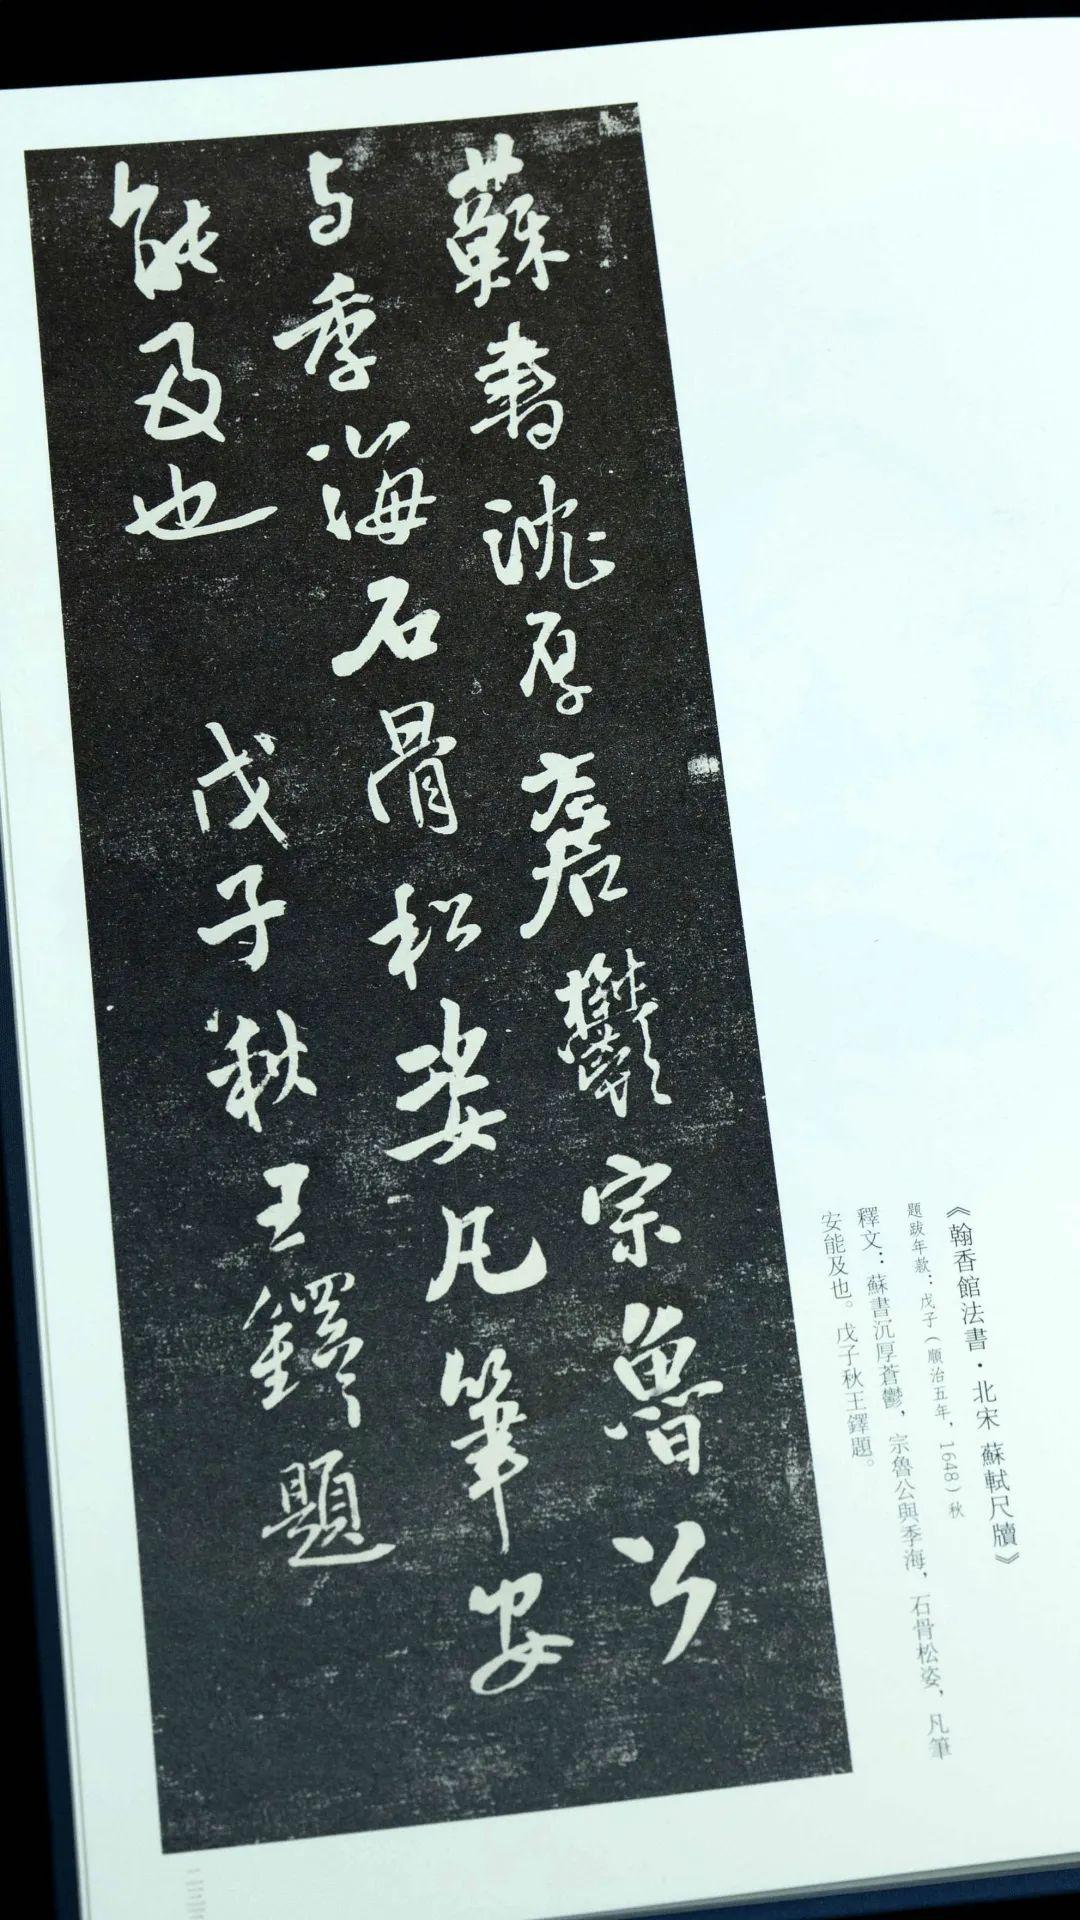 《翰香館法書·北宋 蘇軾尺牘》
題跋年款：戊子（順治五年，1648）秋
釋文：蘇書沉厚蒼鬱，宗魯公與季海，石骨松姿，凡筆
安能及也。戊子秋王鐸題。
蘇書沈厚蒼鬱宗魯公
与季海石骨松姿凡筆安
能及也 戊子秋王鐸題